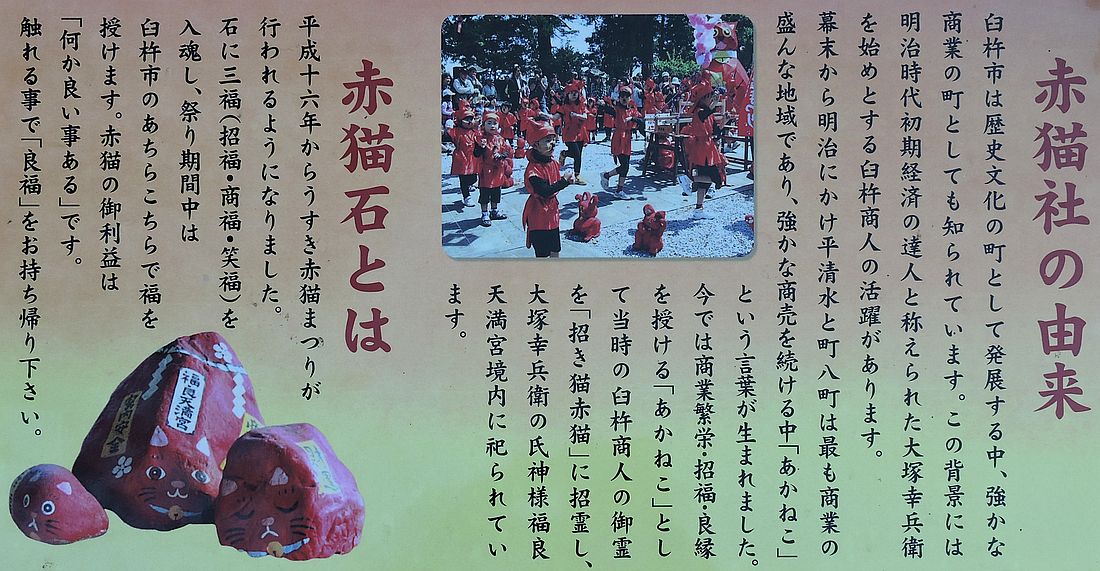 赤猫社の由来
臼杵市は歴史文化の町として発展する中、強かな
商業の町としても知られています。この背景には
明治時代初期経済の達人と称えられた大塚幸兵衛
を始めとする臼杵商人の活躍があります。
幕末から明治にかけ平清水と町八町は最も商業の
盛んな地域であり、強かな商売を続ける中「あかねこ」
という言葉が生まれました。
今では商業繁栄・招福・良縁
を授ける「あかねこ」とし
て当時の臼杵商人の御霊
を「招き猫赤猫」に招霊し、
大塚幸兵衛の氏神様福良
天満宮境内に祀られてい
ます。
赤猫石とは
平成十六年からうすき赤猫まつりが
行われるようになりました。
石に三福(招福・商福・笑福)を
入魂し、祭り期間中は
臼杵市のあちらこちらで福を
授けます。赤猫の御利益は
「何か良い事ある」です。
触れる事で「良福」をお持ち帰り下さい。
福良天満宮